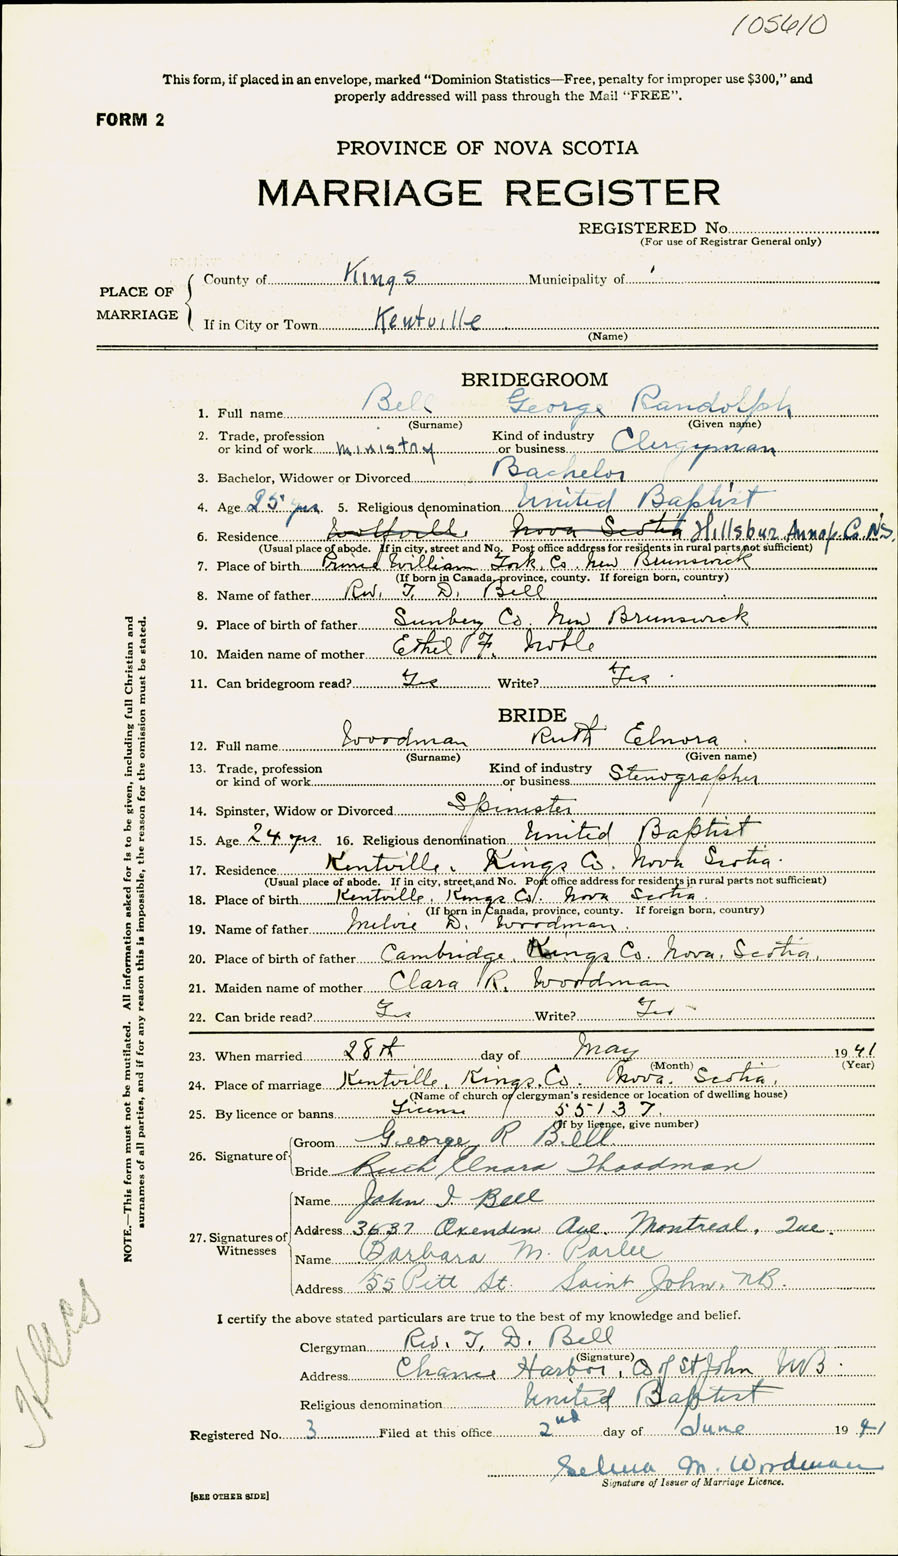 105610
This form, if placed in an envelope, marked “Dominion Statistics—Free, penalty for improper use $300,” and
properly addressed will pass through the Mail “FREE”.
FORM 2
PROVINCE OF NOVA SCOTIA
MARRIAGE REGISTER
REGISTERED No.
(For use of Registrar General only)
PLACE OF MARRIAGE
County of Kings Municipality of
If in City or Town Kentville
(Name)
BRIDEGROOM
1. Full name Bell George Randolph
(Surname) (Given name)
2. Trade, profession or kind of work ministry Kind of industry or business Clergyman
3. Bachelor, Widower or Divorced Bachelor
4. Age 25 yrs. 5. Religious denomination United Baptist
6. Residence Wolfville Nova Scotia Hillsbur. Annap. Co. N.S.
(Usual place of abode. If in city, street and No. Post office address for residents in rural parts not sufficient)
7. Place of birth Prince William York Co. New Brunswick
(If born in Canada, province, county. If foreign born, country)
8. Name of father Rev. T. D. Bell
9. Place of birth of father Sunbery Co. New Brunswick
10. Maiden name of mother Ethel F. Noble
11. Can bridegroom read? Yes Write? Yes
BRIDE
12. Full name Woodman Ruth Elnora
(Surname) (Given name)
13. Trade, profession or kind of work Kind of industry or business Stenographer
14. Spinster, Widow or Divorced Spinster
15. Age 24 yrs 16. Religious denomination United Baptist
17. Residence Kentville, Kings Co. Nova Scotia.
(Usual place of abode. If in city, street, and No. Post office address for residents in rural parts not sufficient)
18. Place of birth Kentville, Kings Co. Nova Scotia.
(If born in Canada, province, county. If foreign born, country)
19. Name of father D. Woodman.
20. Place of birth of father Cambridge, Kings Co. Nova, Scotia,
21. Maiden name of mother Clara R. Woodman
22. Can bride read? Yes Write? Yes
23. When married 28th day of May 1941
(Month) (Year)
24. Place of marriage Kentville, Kings, Co. Nova. Scotia,
(Name of church or clergyman's residence or location of dwelling house)
25. By licence or banns License 55137.
(If by licence, give number)
26. Signature of
Groom George R Bell
Bride Ruth Elnora Woodman
27. Signatures of Witnesses
Name John I. Bell
Address 3637 Oxenden Ave. Montreal, Que.
Name Barbara M. Parlee
Address 55 Pitt St. Saint John, N.B.
I certify the above stated particulars are true to the best of my knowledge and belief.
Clergyman Rev. T. D. Bell
(Signature)
Address Chance Harbor, Co of St John N.B.
Religious denomination United Baptist
Registered No. 3 Filed at this office 2nd day of June 1941
Selma M. Woodman
Signature of Issuer of Marriage Licence.
[SEE OTHER SIDE]
NOTE.—This form must not be mutilated. All information asked for is to be given, including full Christian and
surnames of all parties, and if for any reason this is impossible, the reason for the omission must be stated.